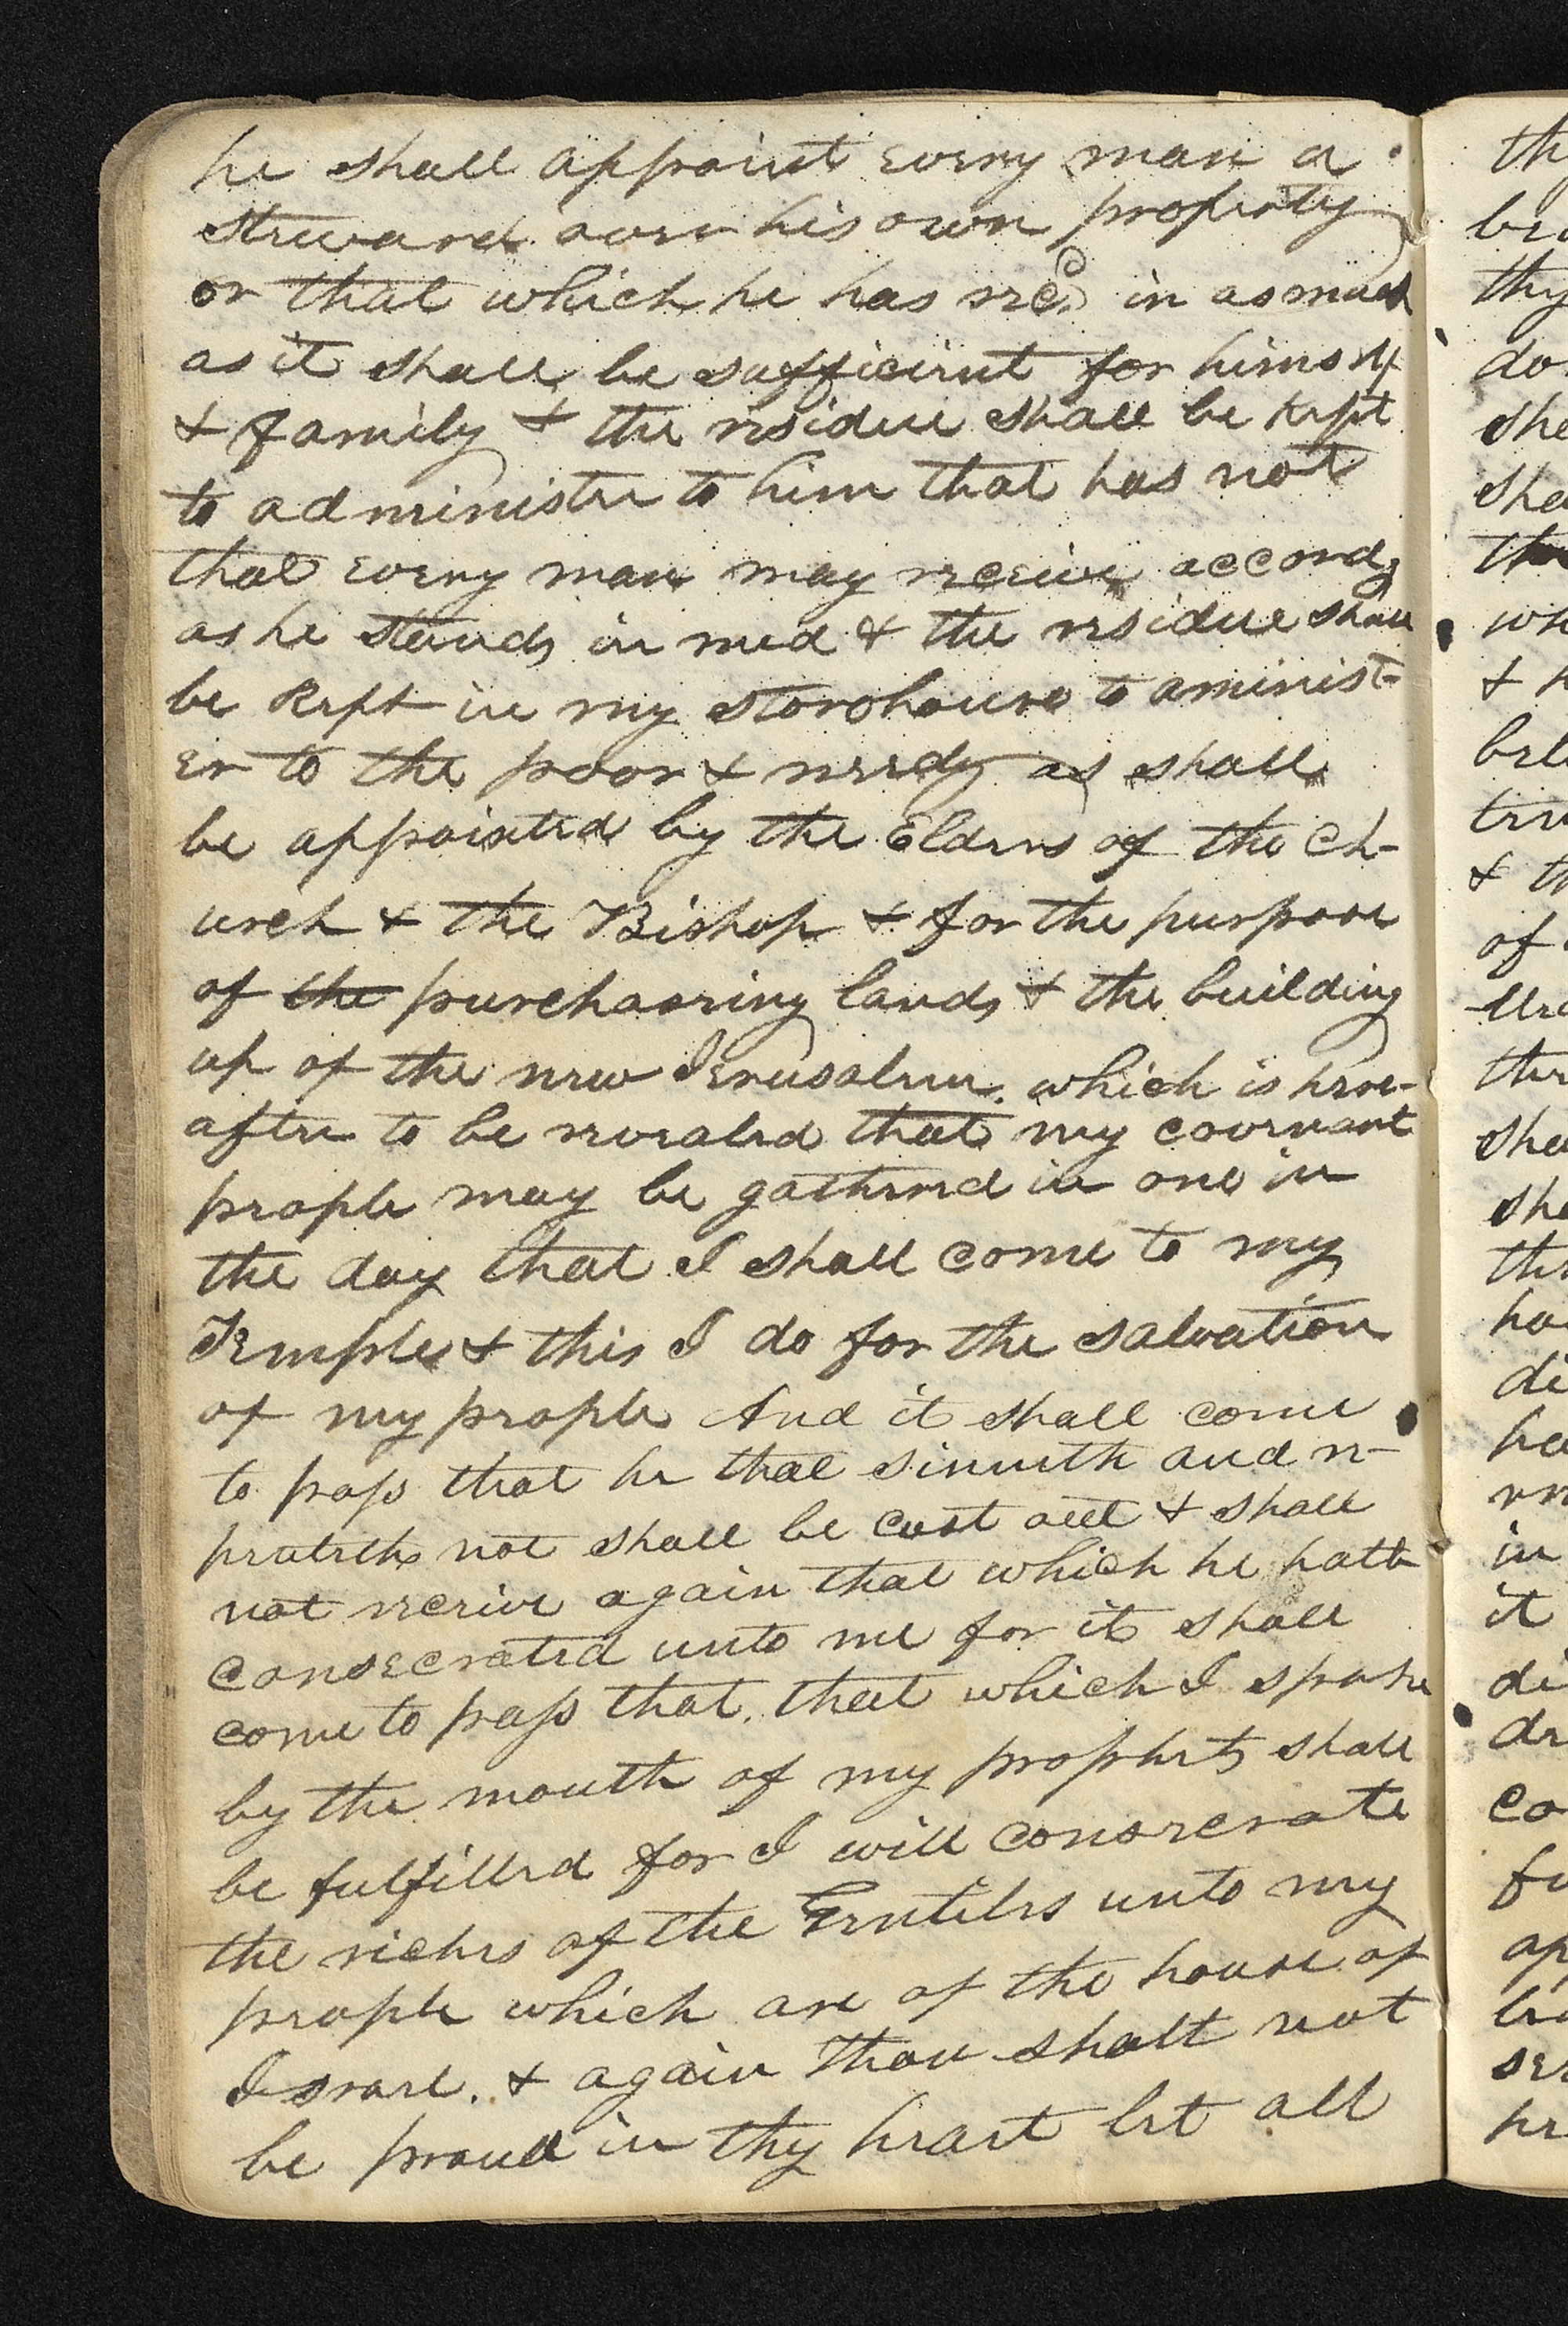 he shall appoint every man a
Steward over his own property
or that which he has recd. in as much
as it shall be sufficient for himself
& family & the residue shall be kept
to administer to him that has not
that every man may receive accordg
as he stands in need & the residue shall
be kept in my storehouse to aminist-
er to the poor & needy as shall
be appointed by the Elders of the Ch-
urch & the Bishop & for the purpose
of the purchasing lands & the building
up of the new Jerusalem. which is here-
after to be revealed that my covenant
people may be gathered in one in
the day that I shall come to my
Temple & this I do for the salvation
of my people And it shall come
to pass that he that sinneth and re-
penteth not shall be cast out & shall
not receive again that which he hath
consecrated unto me for it shall
come to pass that. that which I spoke
by the mouth of my prophets shall
be fulfilled for I will consecrate
the riches of the Gentiles unto my
people which are of the house of
Israel. & again Thou shalt not
be proud in thy heart let all